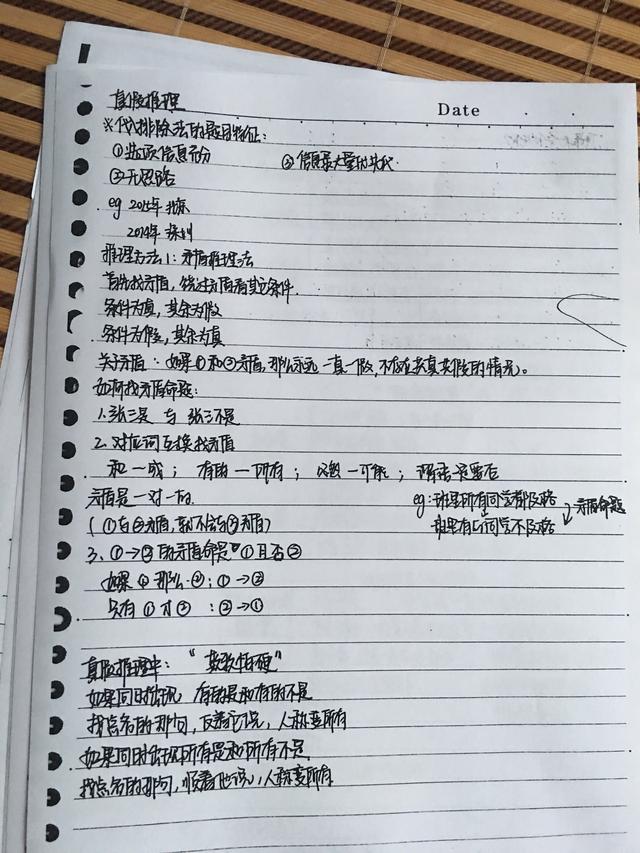 Date
真假推理
※代入排除法的题目特征:
①选项信息充分 ②信息最大量的
③无思路
eg 2015年 北京
2014年 深圳
推理方法1:矛盾推理法
首先找矛盾,绕过矛盾看其它条件.
条件为真,其余为假
条件为假,其余为真
关于矛盾:如果①和②矛盾,那么永远一真一假,不存在共真共假的情况。
如何找矛盾命题:
1.张三是 与 张三不是
2.对应词互换找矛盾
和一或; 有的一所有; 必然一可能;
矛盾是一对一的. eg:班里所有同学都及格
(①与②矛盾,就不会与③矛盾) 班里有的同学不及格 矛盾命题
3.①→②的矛盾命题"①且否②
如果①那么②:①→②
只有①才②:②→①
真假推理中:"
如果同时出现 有的是和有的不是
找点名的那句,反着它说,人称变所有
如果同时出现所有是和所有不是.
找点名的那句,顺着他说,人称变所有.